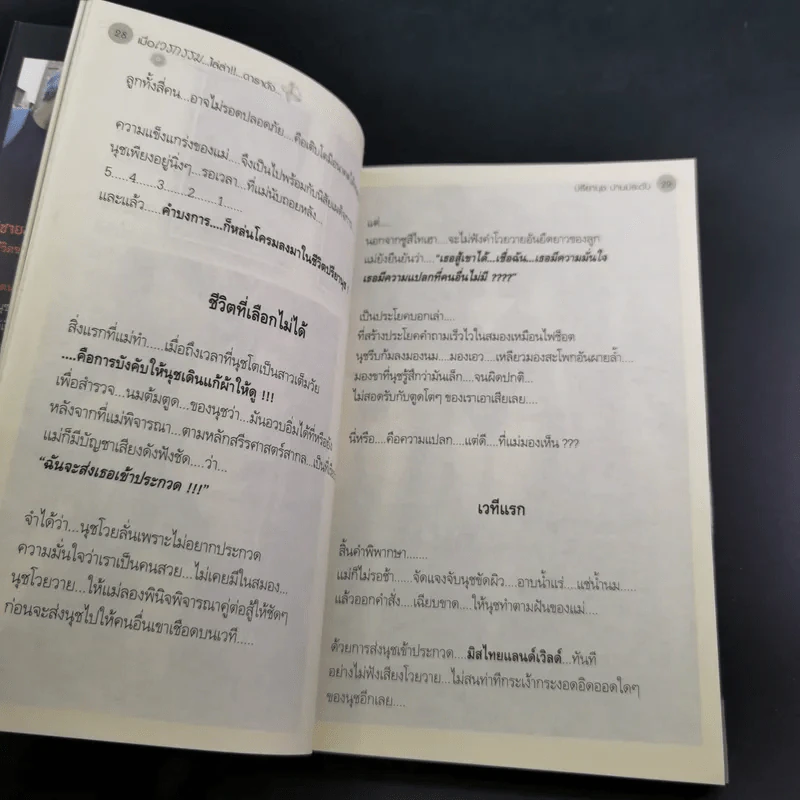 28 เมื่อเวรกรรม...ไล่ล่า!!...ดาราดัง...
ลูกทั้งสี่คน....อาจไม่รอดปลอดภัย....คือเติบโต
ความแข็งแกร่งของแม่....จึงเป็นไปพร้อมกับนิสัยเผด็จการ
นุชเพียงอยู่นิ่งๆ...รอเวลา...ที่แม่นับถอยหลัง...
5....4....3....2....1.....
และแล้ว....คำบงการ....ก็หล่นโครมลงมาในชีวิตปรียานุช !
ชีวิตที่เลือกไม่ได้
สิ่งแรกที่แม่ทำ.....เมื่อถึงเวลาที่นุชโตเป็นสาวเต็มวัย
....คือการบังคับให้นุชเดินแก้ผ้าให้ดู !!!
เพื่อสำรวจ...นมต้มตูด...ของนุชว่า...มันอวบอิ่มได้ที่หรือยัง
หลังจากที่แม่พิจารณา...ตามหลักสรีรศาสตร์สากล...เป็นที่
แม่ก็มีบัญชาเสียงดังฟังชัด.....ว่า...
“ฉันจะส่งเธอเข้าประกวด !!!”
จำได้ว่า...นุชโวยลั่นเพราะไม่อยากประกวด
ความมั่นใจว่าเราเป็นคนสวย...ไม่เคยมีในสมอง...
นุชโวยวาย....ให้แม่ลองพินิจพิจารณาคู่ต่อสู้ให้ชัดๆ
ก่อนจะส่งนุชไปให้คนอื่นเขาเชือดบนเวที.....
ปรียานุช ปานประดับ 29
แต่.....
นอกจากซูสีไทเฮา....จะไม่ฟังคำโวยวายอันยืดยาวของลูก
แม่ยังยืนยันว่า....“เธอสู้เขาได้...เชื่อฉัน...เธอมีความมั่นใจ
เธอมีความแปลกที่คนอื่นไม่มี ????”
เป็นประโยคบอกเล่า....
ที่สร้างประโยคคำถามเร็วไวในสมองเหมือนไฟช็อต
นุชรีบก้มลงมองนม....มองเอว....เหลียวมองสะโพกอันผายล้ำ....
มองขาที่นุชรู้สึกว่ามันเล็ก....จนผิดปกติ...
ไม่สอดรับกับตูดโตๆ ของเราเอาเสียเลย....
นี่หรือ....คือความแปลก....แต่ดี....ที่แม่มองเห็น ???
เวทีแรก
สิ้นคำพิพากษา.......
แม่ก็ไม่รอช้า.....จัดแจงจับนุชขัดผิว....อาบน้ำแร่....แช่น้ำนม.....
แล้วออกคำสั่ง....เฉียบขาด....ให้นุชทำตามฝันของแม่....
ด้วยการส่งนุชเข้าประกวด....มิสไทยแลนด์เวิลด์...ทันที
อย่างไม่ฟังเสียงโวยวาย...ไม่สนท่าทีกระเง้ากระงอดอิดออดใดๆ
ของนุชอีกเลย....